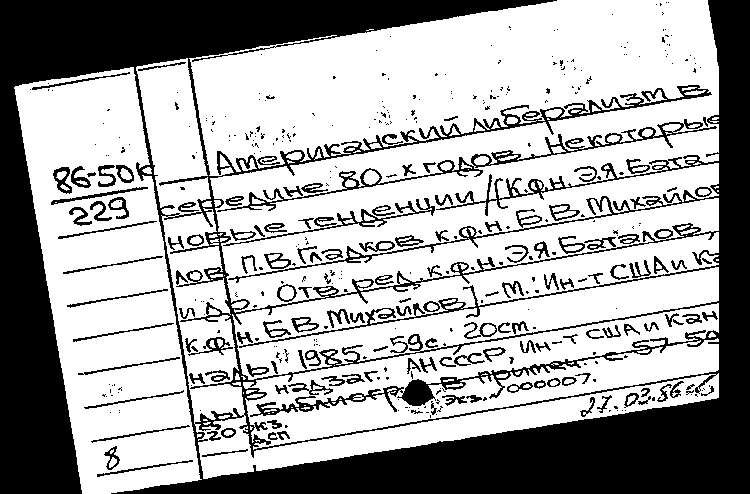 Американский либерализм в
86-50к
229
середине 80-х годов: Некоторые
новые тенденции /[К.ф.н. Э.Я. Бата-
лов, П.В. Гладков, к.ф.н. Б.В. Михайлов
и др.; Отв. ред. к.ф.н. Э.Я. Баталов,
к.ф.н. Б.В. Михайлов]. - М.: Ин-т США и Ка
нады, 1985. - 59с.; 20см.
В надзаг.: АН СССР, Ин-т США и Кан
ды. Библиогр. В примеч.: с. 57-59
220 экз.
Экз. № 000007.
ДСП
27.03.86
8